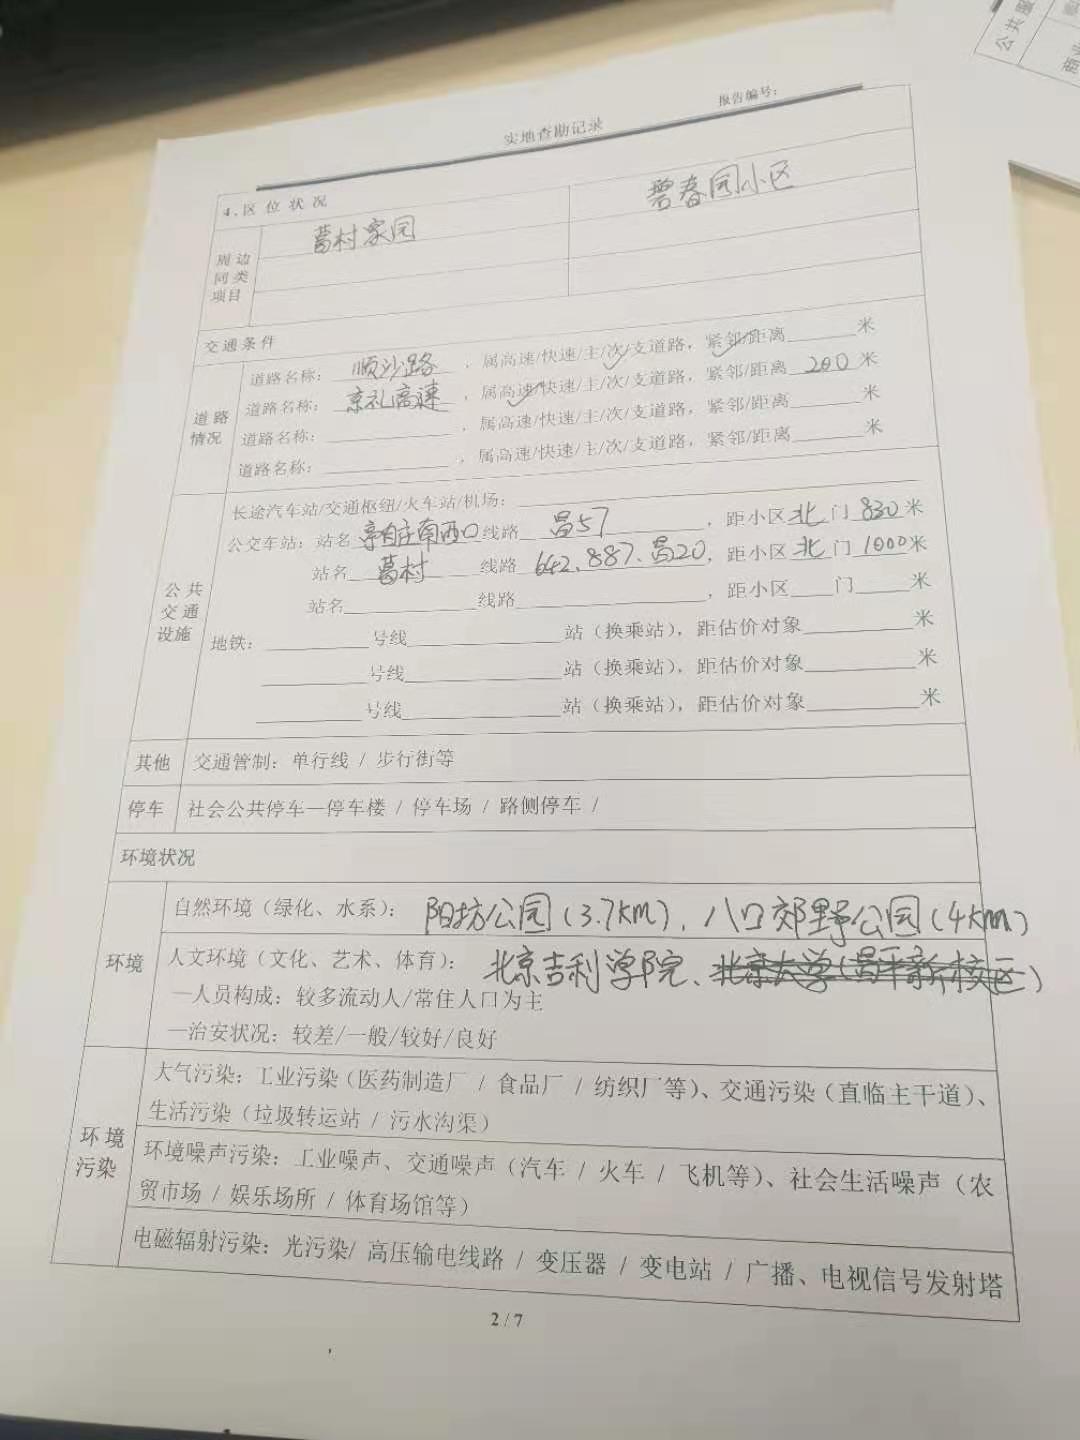 报告编号：
实地查勘记录
4.区位状况
周边同类项目
葛村家园
碧春园小区
交通条件
道路情况
道路名称：顺沙路，属高速/快速/主/次/支道路，紧邻/距离______米
道路名称：京礼高速，属高速/快速/主/次/支道路，紧邻/距离200米
道路名称：______，属高速/快速/主/次/支道路，紧邻/距离______米
道路名称：______，属高速/快速/主/次/支道路，紧邻/距离______米
公共交通设施
长途汽车站/交通枢纽/火车站/机场：______
公交车站：站名亭自庄南西口线路昌57，距小区北门830米
站名葛村线路642、887、昌20，距小区北门1000米
站名______线路______，距小区____门____米
地铁：______号线______站（换乘站），距估价对象______米
______号线______站（换乘站），距估价对象______米
______号线______站（换乘站），距估价对象______米
其他 交通管制：单行线 / 步行街等
停车 社会公共停车—停车楼 / 停车场 / 路侧停车 /
环境状况
环境
自然环境（绿化、水系）：阳坊公园（3.7km）、八口郊野公园（4km）
人文环境（文化、艺术、体育）：北京吉利学院、北京大学（昌平新校区）
—人员构成：较多流动人/常住人口为主
—治安状况：较差/一般/较好/良好
环境污染
大气污染：工业污染（医药制造厂 / 食品厂 / 纺织厂等）、交通污染（直临主干道）、
生活污染（垃圾转运站 / 污水沟渠）
环境噪声污染：工业噪声、交通噪声（汽车 / 火车 / 飞机等）、社会生活噪声（农
贸市场 / 娱乐场所 / 体育场馆等）
电磁辐射污染：光污染/ 高压输电线路 / 变压器 / 变电站 / 广播、电视信号发射塔
2 / 7
公共服
商业